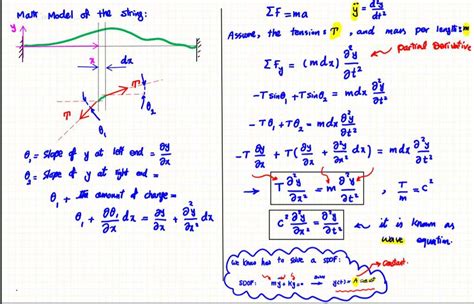 Math Model of the string:
y
x
dx
T
T
θ₁
θ₂
θ₁ = Slope of y at left end = ∂y/∂x
θ₂ = Slope of y at right end =
θ₁ + the amount of change =
θ₁ + ∂θ₁/∂x dx = ∂y/∂x + ∂²y/∂x² dx
ΣF = ma
ÿ = d²y/dt²
Assume, the tension = T, and mass per length = m
partial Derivative
ΣFy = (m dx) ∂²y/∂t²
-T sinθ₁ + T sinθ₂ = m dx ∂²y/∂t²
-Tθ₁ + Tθ₂ = m dx ∂²y/∂t²
-T ∂y/∂x + T(∂y/∂x + ∂²y/∂x² dx) = m dx ∂²y/∂t²
→ T ∂²y/∂x² = m ∂²y/∂t² , T/m = c²
c² ∂²y/∂x² = ∂²y/∂t² → it is known as
wave equation.
We know how to solve a SDOF:
constant.
SDOF: mÿ + ky = 0 → y(t) =